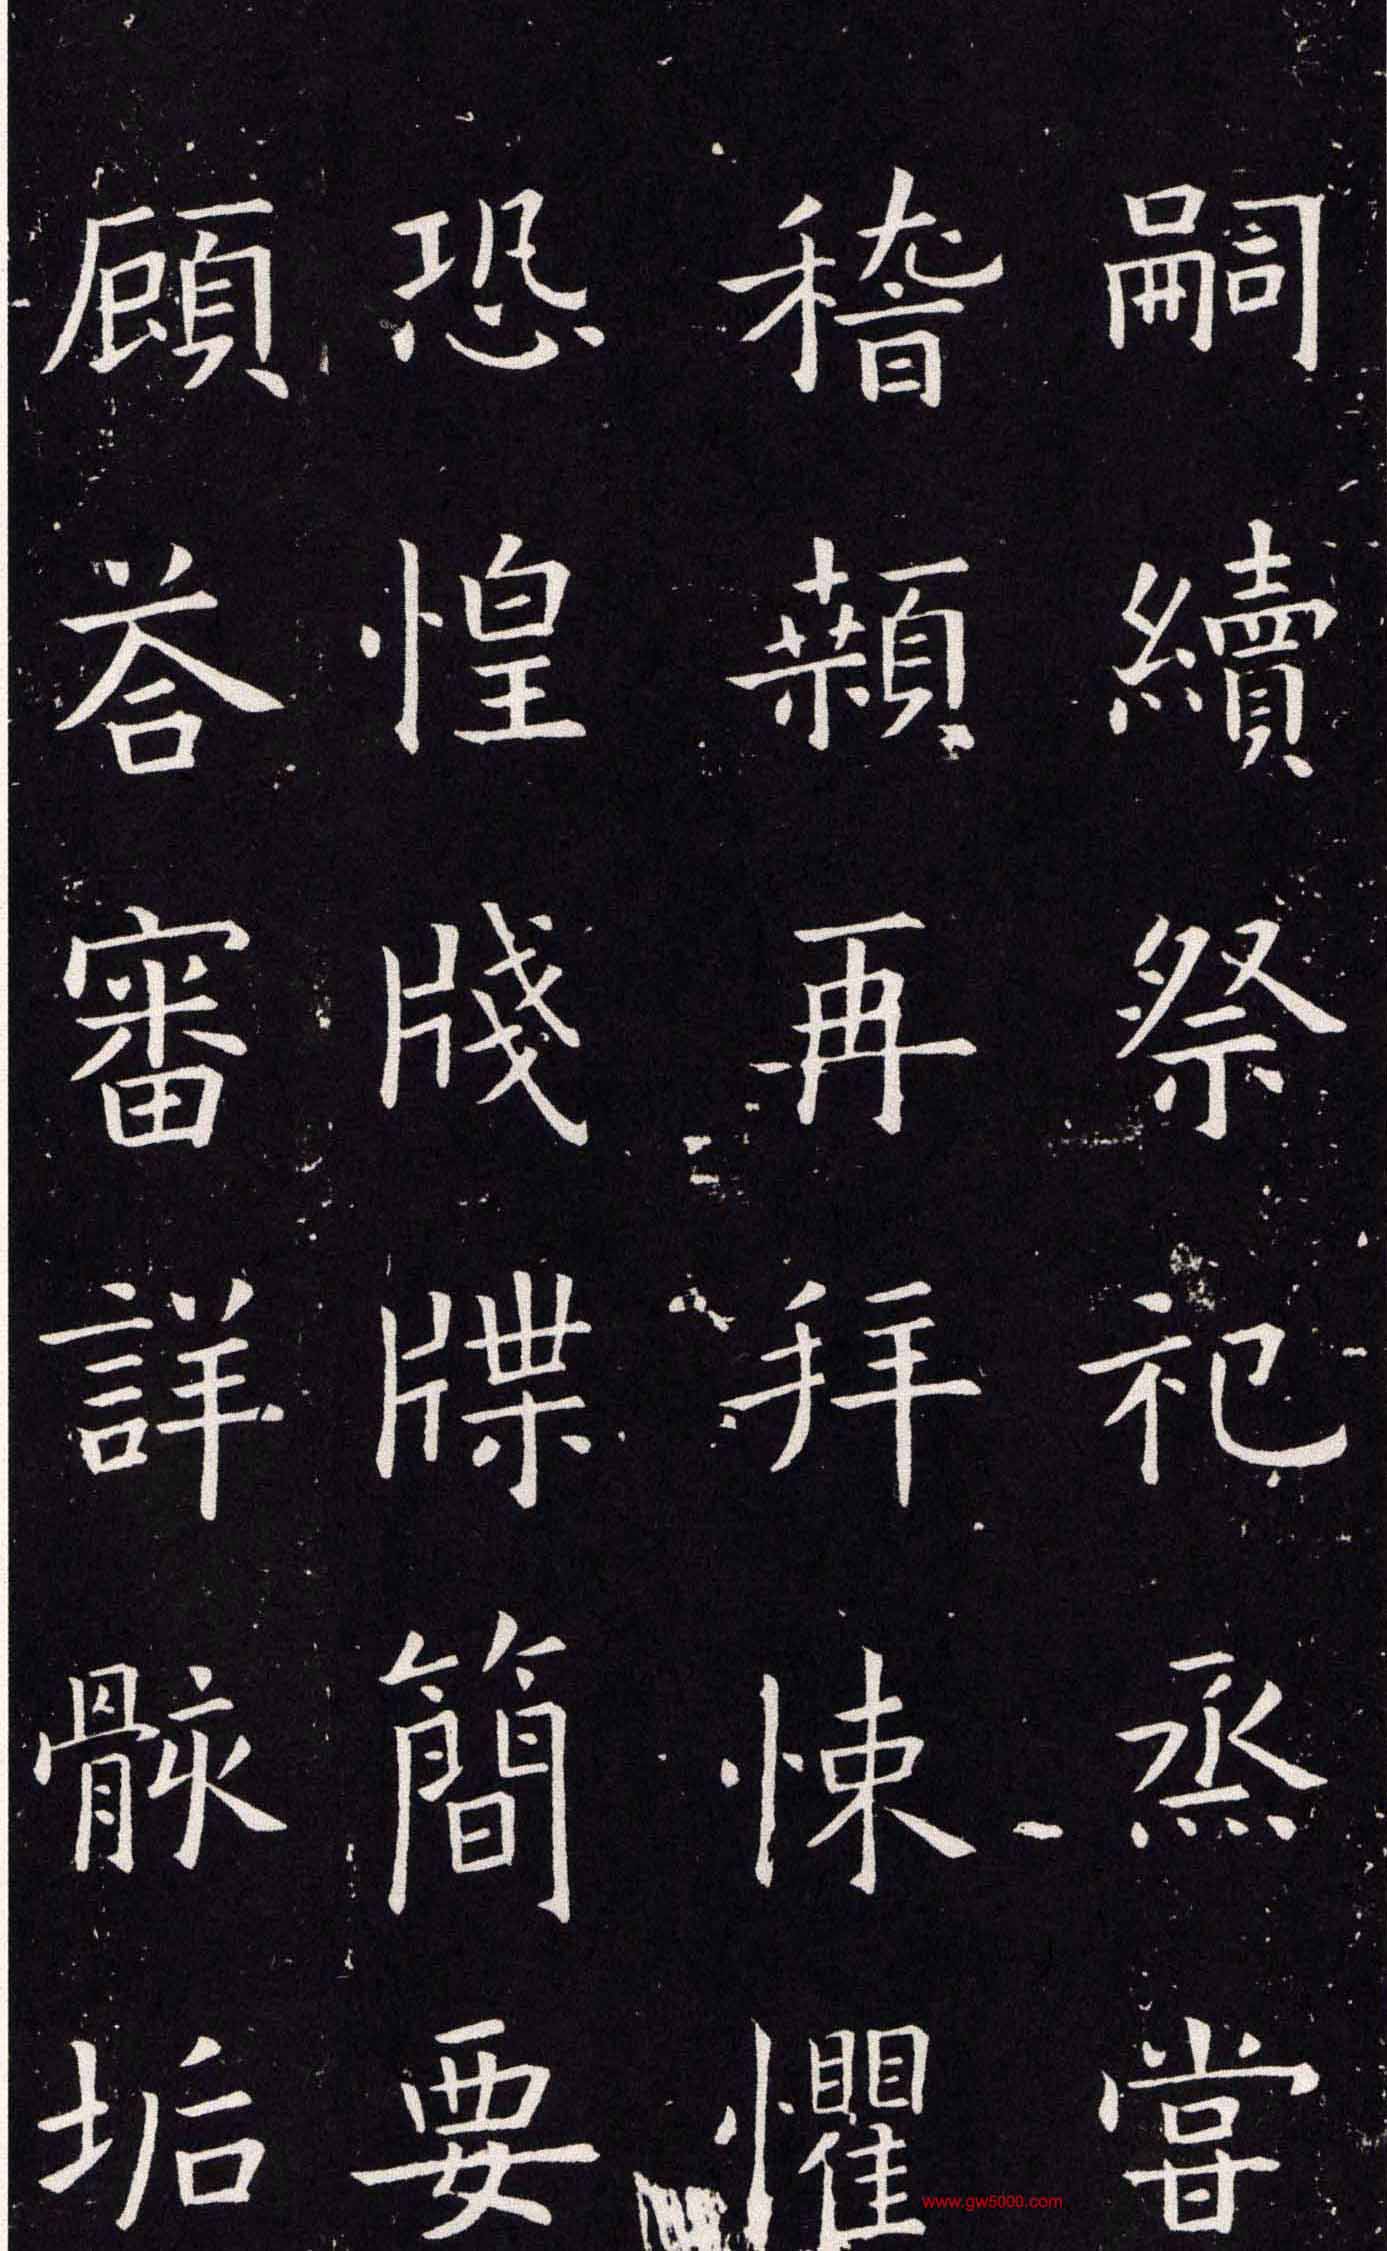 嗣續祭祀烝甞
稽顙再拜悚懼
恐惶牋牒簡要
顧荅審詳骸垢
www.gw5000.com